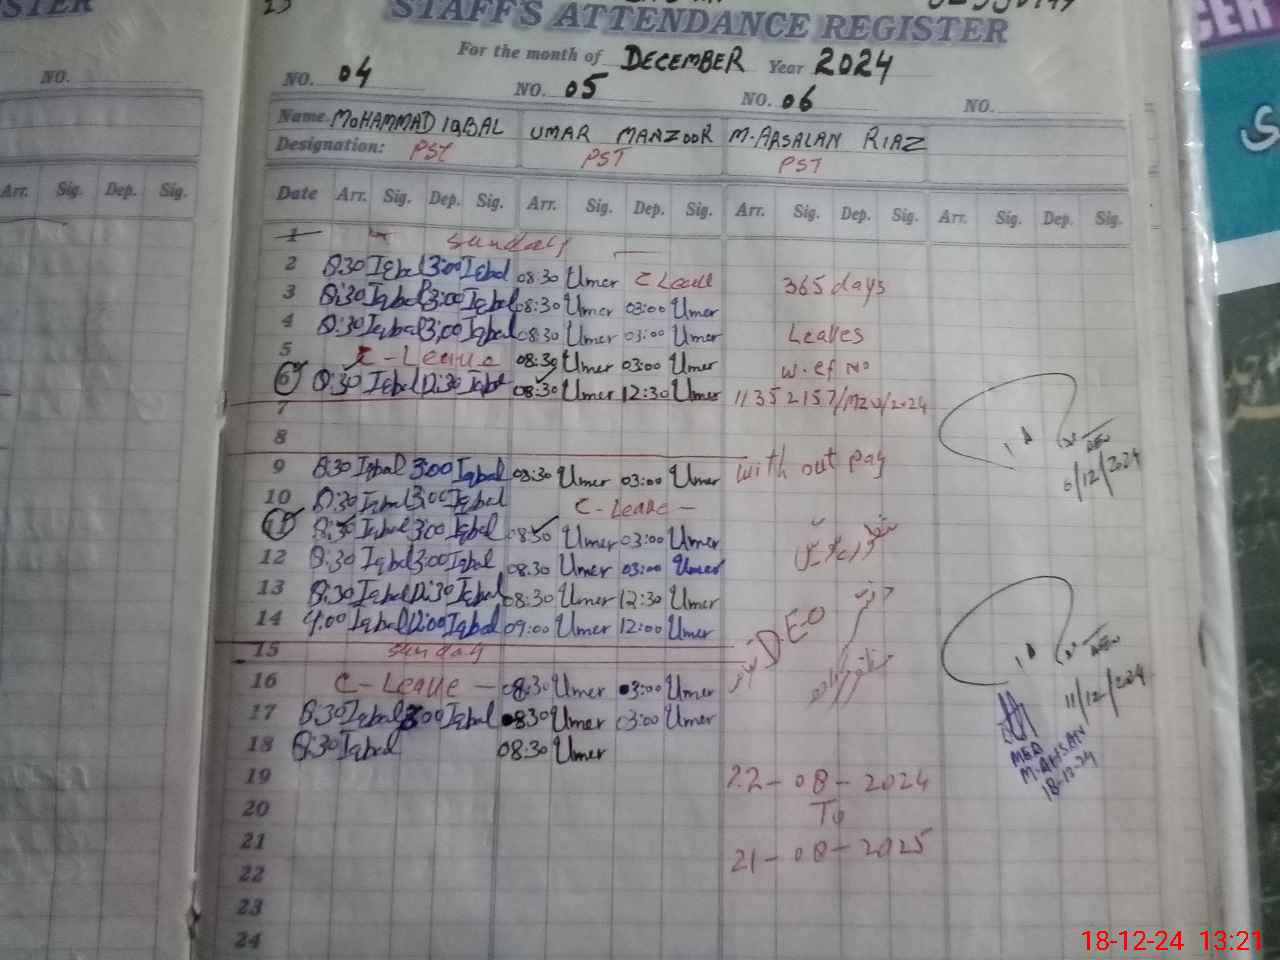 STAFF'S ATTENDANCE REGISTER
For the month of DECEMBER Year 2024
NO.
NO. 04 NO. 05 NO. 06 NO.
Name. MOHAMMAD IQBAL UMAR MANZOOR M. ARSALAN RIAZ
Designation: PST PST PST
Arr. Sig. Dep. Sig.
Date Arr. Sig. Dep. Sig. Arr. Sig. Dep. Sig. Arr. Sig. Dep. Sig. Arr. Sig. Dep. Sig.
1 Sunday
2 8:30 Iqbal 3:00 Iqbal 08:30 Umer C Leave 365 days
3 8:30 Iqbal 3:00 Iqbal 08:30 Umer 03:00 Umer
4 8:30 Iqbal 3:00 Iqbal 08:30 Umer 03:00 Umer Leaves
5 C-Leave 08:30 Umer 03:00 Umer w.ef No
6 8:30 Iqbal 12:30 Iqbal 08:30 Umer 12:30 Umer
7
8
9 8:30 Iqbal 3:00 Iqbal 08:30 Umer 03:00 Umer with out pay
10 8:30 Iqbal 3:00 Iqbal C-Leave -
11 8:30 Iqbal 3:00 Iqbal 08:30 Umer 03:00 Umer
12 8:30 Iqbal 3:00 Iqbal 08:30 Umer 03:00 Umer
13 8:30 Iqbal 12:30 Iqbal 08:30 Umer 12:30 Umer
14 9:00 Iqbal 12:00 Iqbal 09:00 Umer 12:00 Umer D.E.O
15 Sunday
16 C-Leave - 08:30 Umer 03:00 Umer
17 8:30 Iqbal 3:00 Iqbal 08:30 Umer 03:00 Umer
18 8:30 Iqbal 08:30 Umer
19 22-08-2024
20 To
21 21-08-2025
22
23
24
6/12/2024
11/12/2024
M. AHSAN
18-12-24
18-12-24 13:21